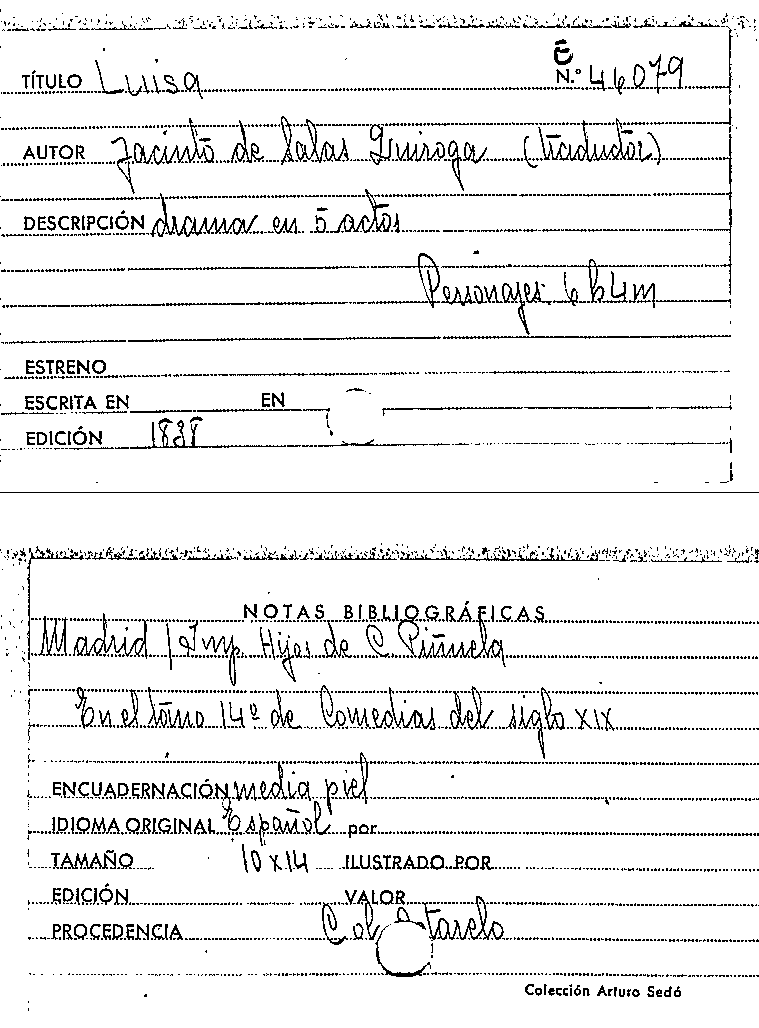 TÍTULO Luisa N.º 46079
AUTOR Jacinto de Salas Quiroga (traductor)
DESCRIPCIÓN drama en 5 actos
Personajes: 6 h 4 m
ESTRENO
ESCRITA EN EN
EDICIÓN 1838
NOTAS BIBLIOGRÁFICAS
Madrid / Imp. Hijos de C. Piñuela
En el tomo 14º de Comedias del siglo XIX
ENCUADERNACIÓN media piel
IDIOMA ORIGINAL Español por
TAMAÑO 10 x 14 ILUSTRADO POR
EDICIÓN VALOR
PROCEDENCIA Col.
Colección Arturo Sedó